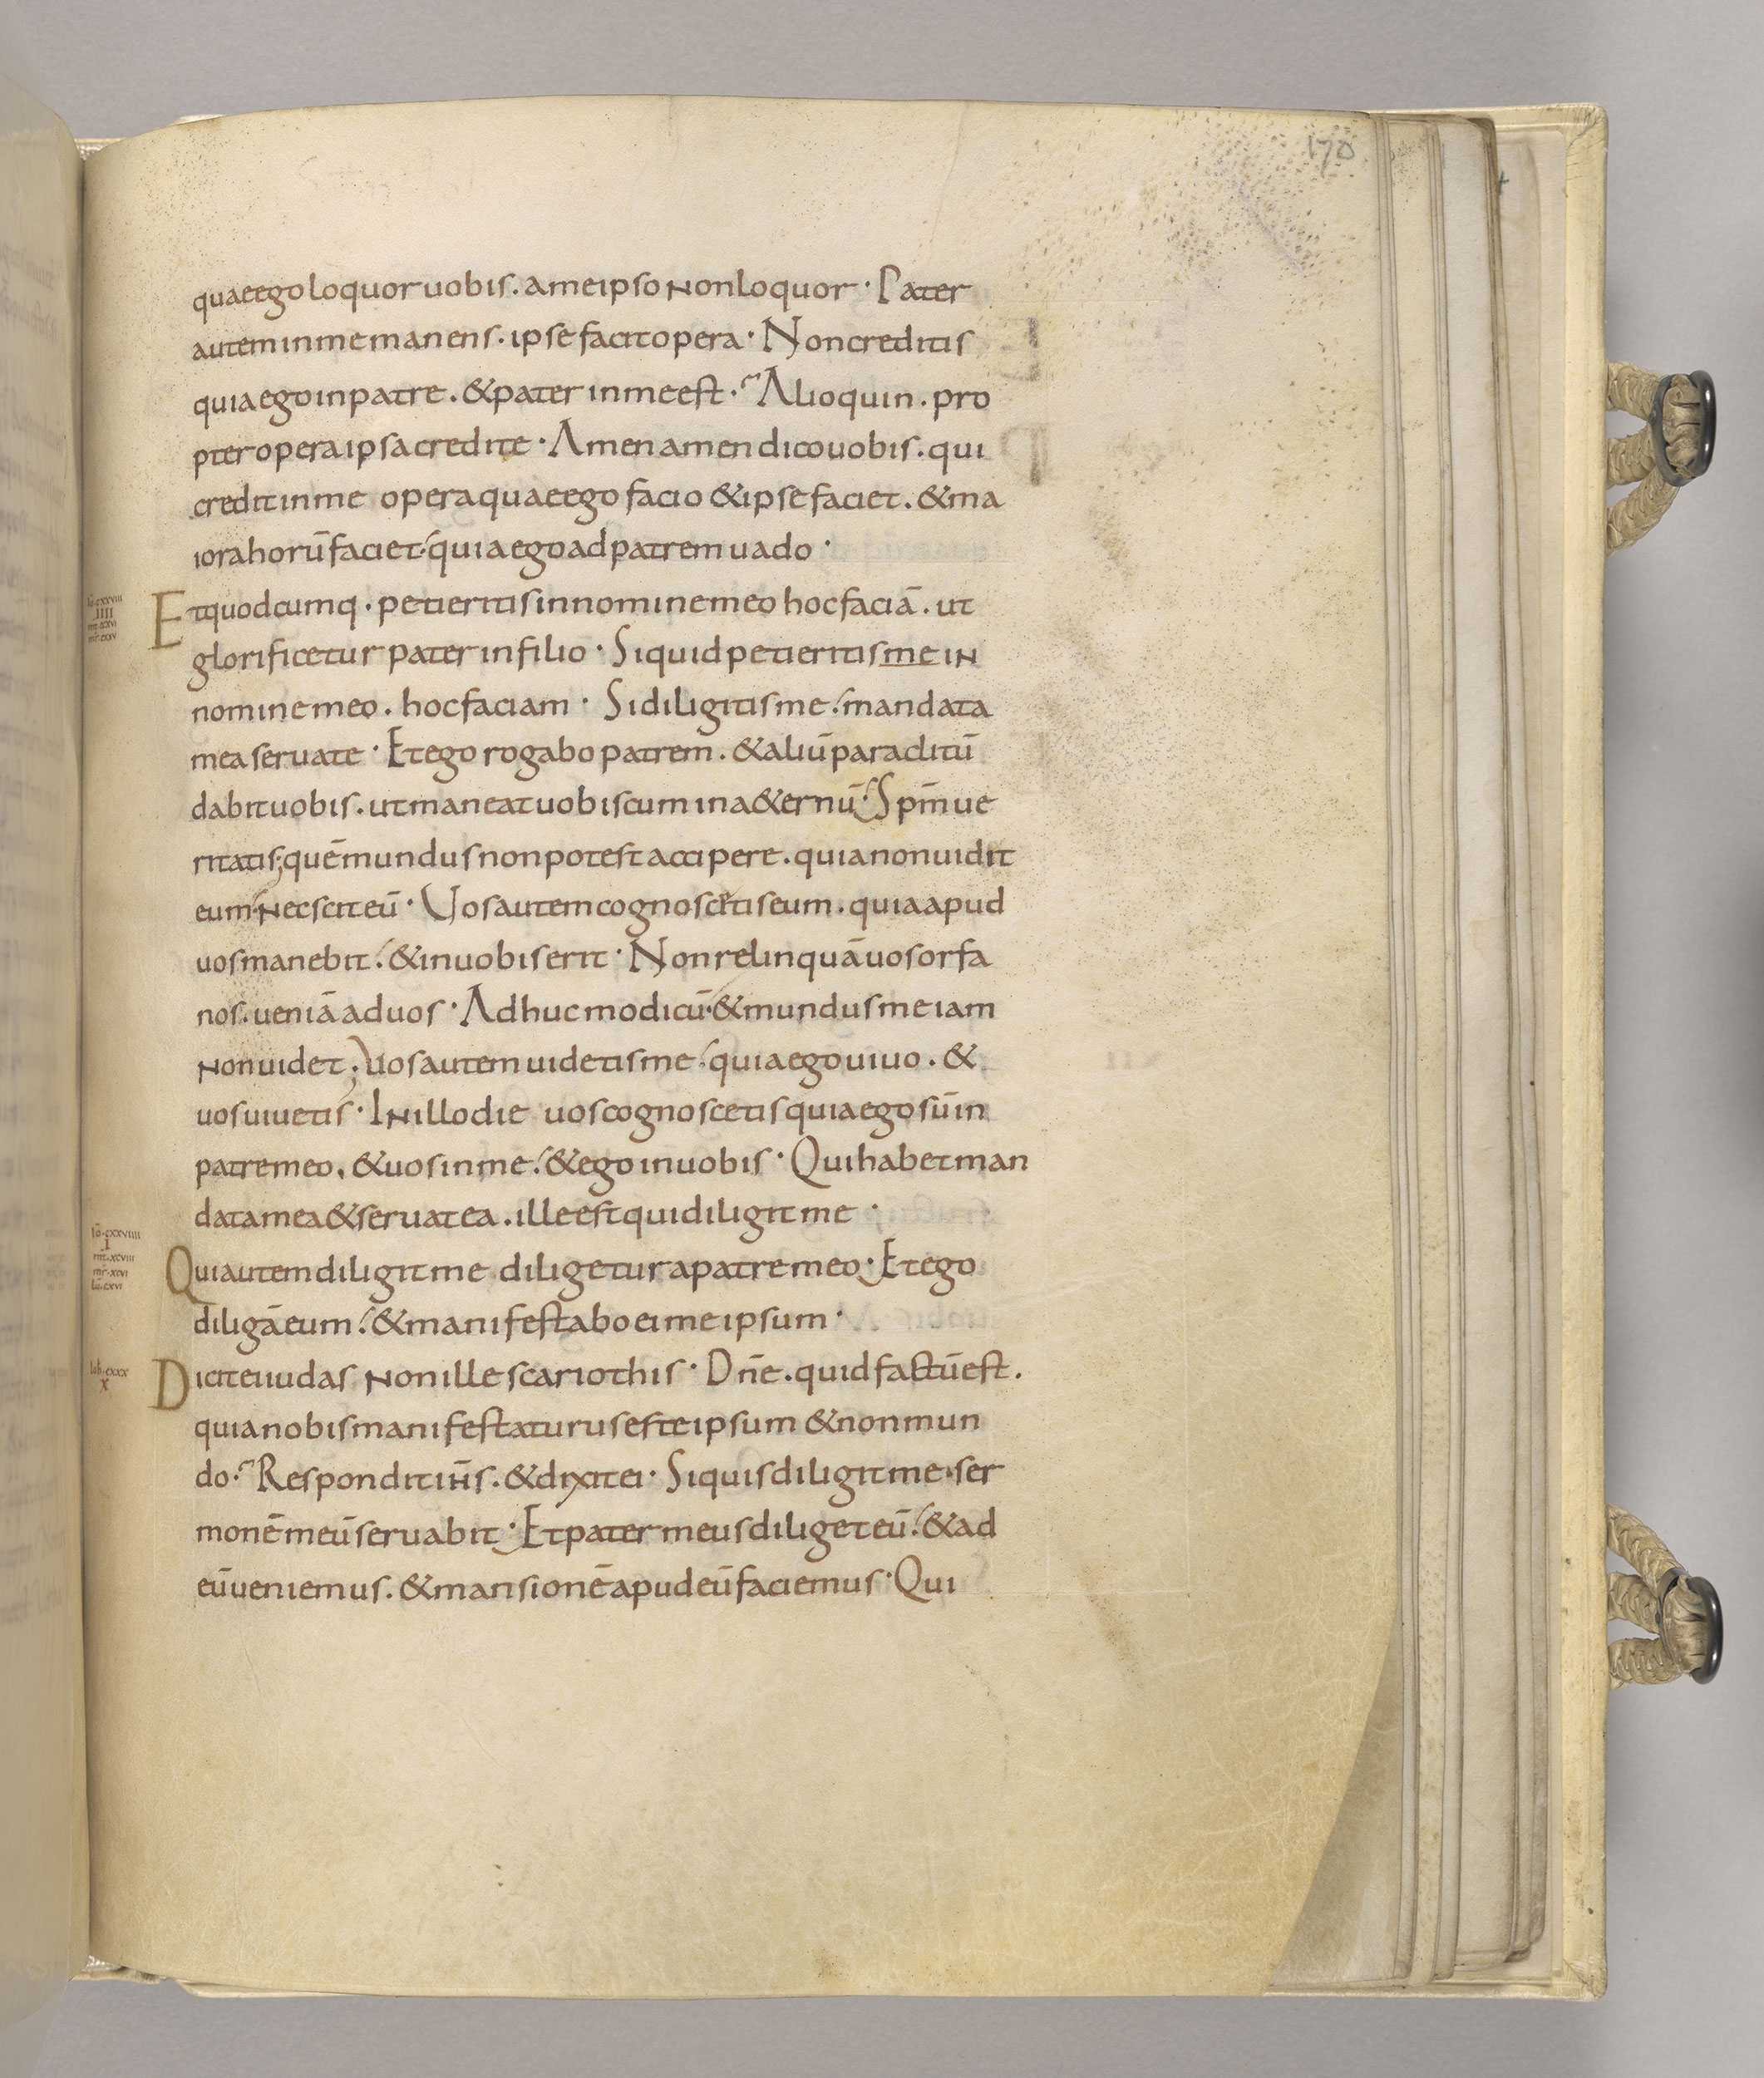 170
quaeego loquor uobis. ameipso Nonloquor · Pater
autem inme manens. ipse facit opera · Non creditis
quia ego inpatre. & pater inme est · Alioquin. pro
pter opera ipsa credite · Amen amen dico uobis. qui
credit inme opera quae ego facio & ipse faciet. & ma
iora horū faciet quia ego ad patrem uado ·
Et quodcumq · petieritis in nomine meo hoc faciā. ut
glorificetur pater in filio · Siquid petieritis me IN
nomine meo. hoc faciam · Si diligitis me mandata
mea seruate · Et ego rogabo patrem. & aliū paraclitū
dabit uobis. ut maneat uobiscum in a&ernū · Spm̄ ue
ritatis; quē mundus non potest accipere. quia non uidit
eum Nec scit eū · Uos autem cognoscetis eum. quia apud
uos manebit & in uobis erit · Non relinquā uos orfa
nos. ueniā ad uos · Adhuc modicū & mundus me iam
Non uidet; Uos autem uidetis me quia ego uiuo. &
uos uiuetis · IN illo die uos cognoscetis quia ego sū in
patre meo. & uos in me & ego in uobis · Qui habet man
data mea & seruat ea. ille est qui diligit me ·
Qui autem diligit me diligetur a patre meo · Et ego
diligā eum & manifestabo ei me ipsum ·
Dicit ei iudas Non ille scariothis · Dn̄e. quid factū est.
quia nobis manifestaturus es te ipsum & non mun
do · Respondit ih̄s. & dixit ei · Siquis diligit me ser
monē meū seruabit · Et pater meus diliget eū & ad
eū ueniemus. & mansionē apud eū faciemus · Qui
iō·cxxviii
IIII
mt·ccxvi
mr·cxxv
iō·cxxviiii
I
mt·xcviii
mr·xcvi
lu·cxvi
ioh·cxxx
X